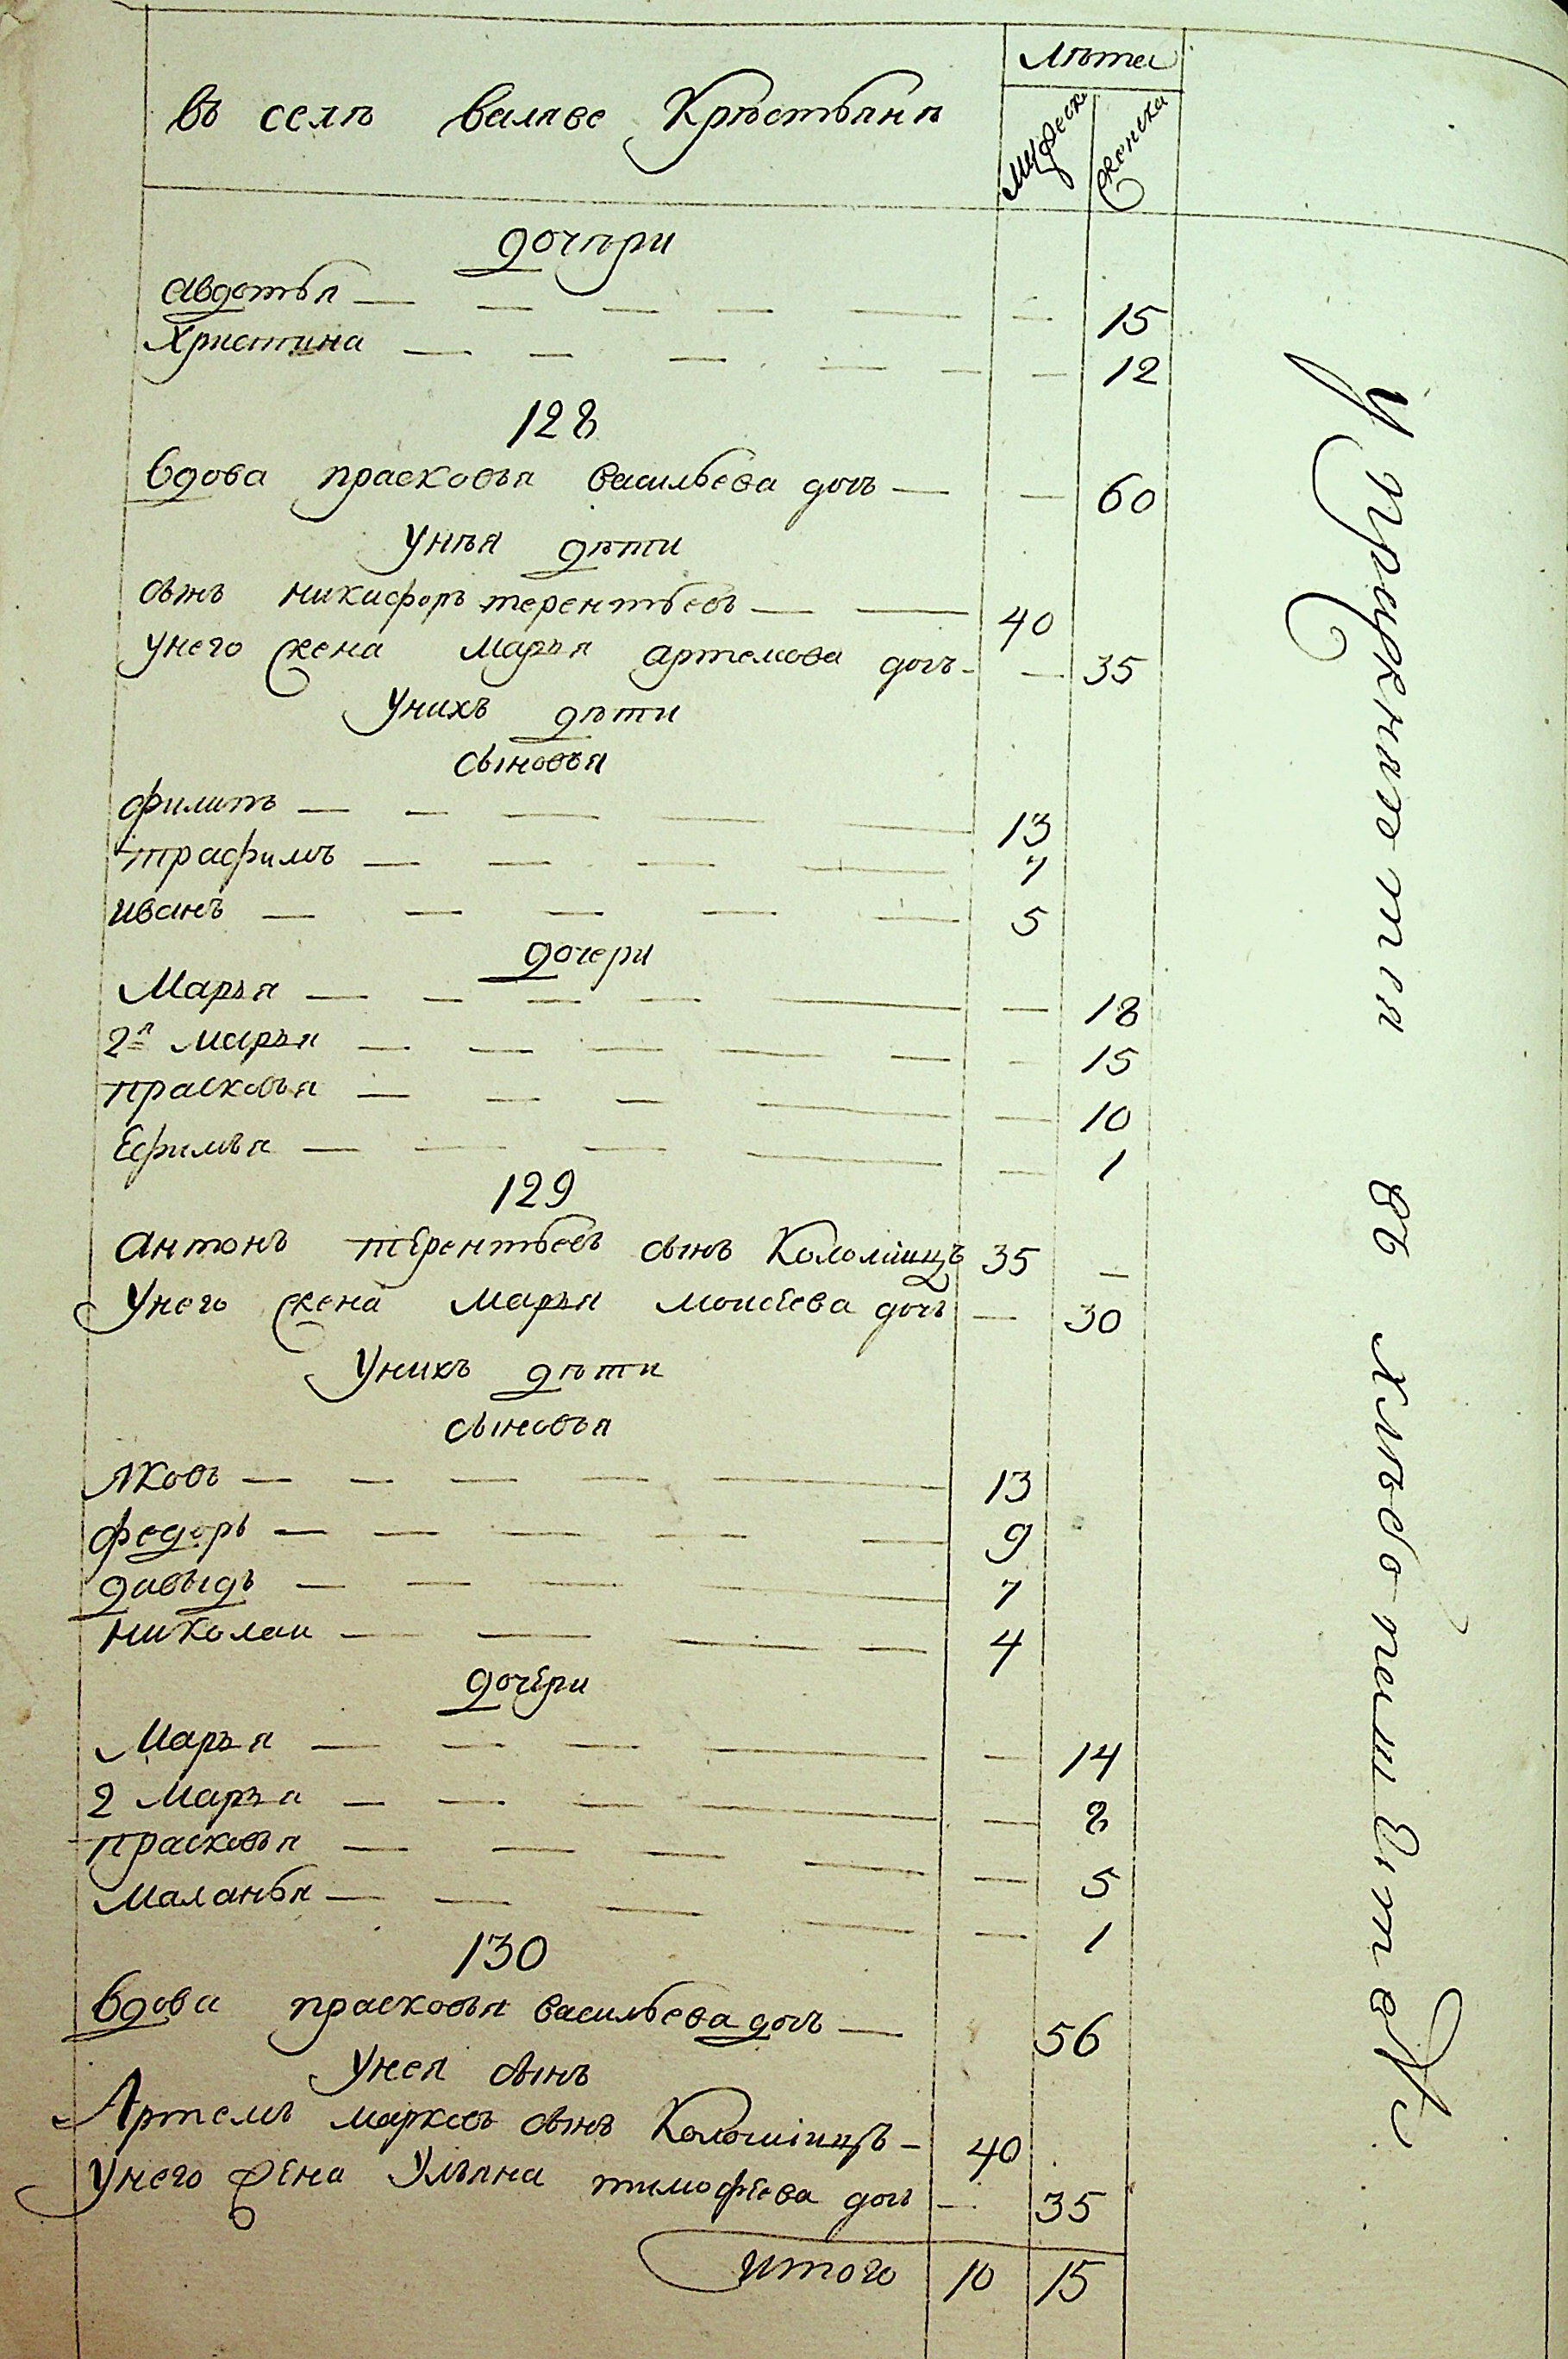 лѣта
въ селѣ валяве Крѣстьянѣ
мужеск женска
дочѣри
авдотья — — — — — — 15
Христина — — — — — — 12
128
вдова прасковья васильева дочь — — 60
Унѣя дѣти
сынъ никифоръ терентьевъ — — 40
Унего жена Марья артемова дочь — — 35
Унихъ дѣти
сыновья
филипъ — — — — — 13
трафимъ — — — — 7
иванъ — — — — — 5
дочери
Марья — — — — — — 18
2я марья — — — — — — 15
прасковья — — — — — 10
Ефимья — — — — — 1
129
антонъ терентьевъ сынъ Коломіицъ 35 —
Унего жена Марья моисеева дочь — 30
Унихъ дѣти
сыновья
яковъ — — — — — 13
федоръ — — — — — 9
давыдъ — — — — 7
николаи — — — — 4
дочери
Марья — — — — — 14
2 Марья — — — — — 8
прасковья — — — — — 5
маланья — — — — — 1
130
вдова прасковья васильева дочь — 56
Унея сынъ
Артемъ марковъ сынъ Коломіицъ — 40
Унего жена Ульяна тимофеева дочь — 35
итого 10 15
Упражняются въ хлѣбопашествѣ